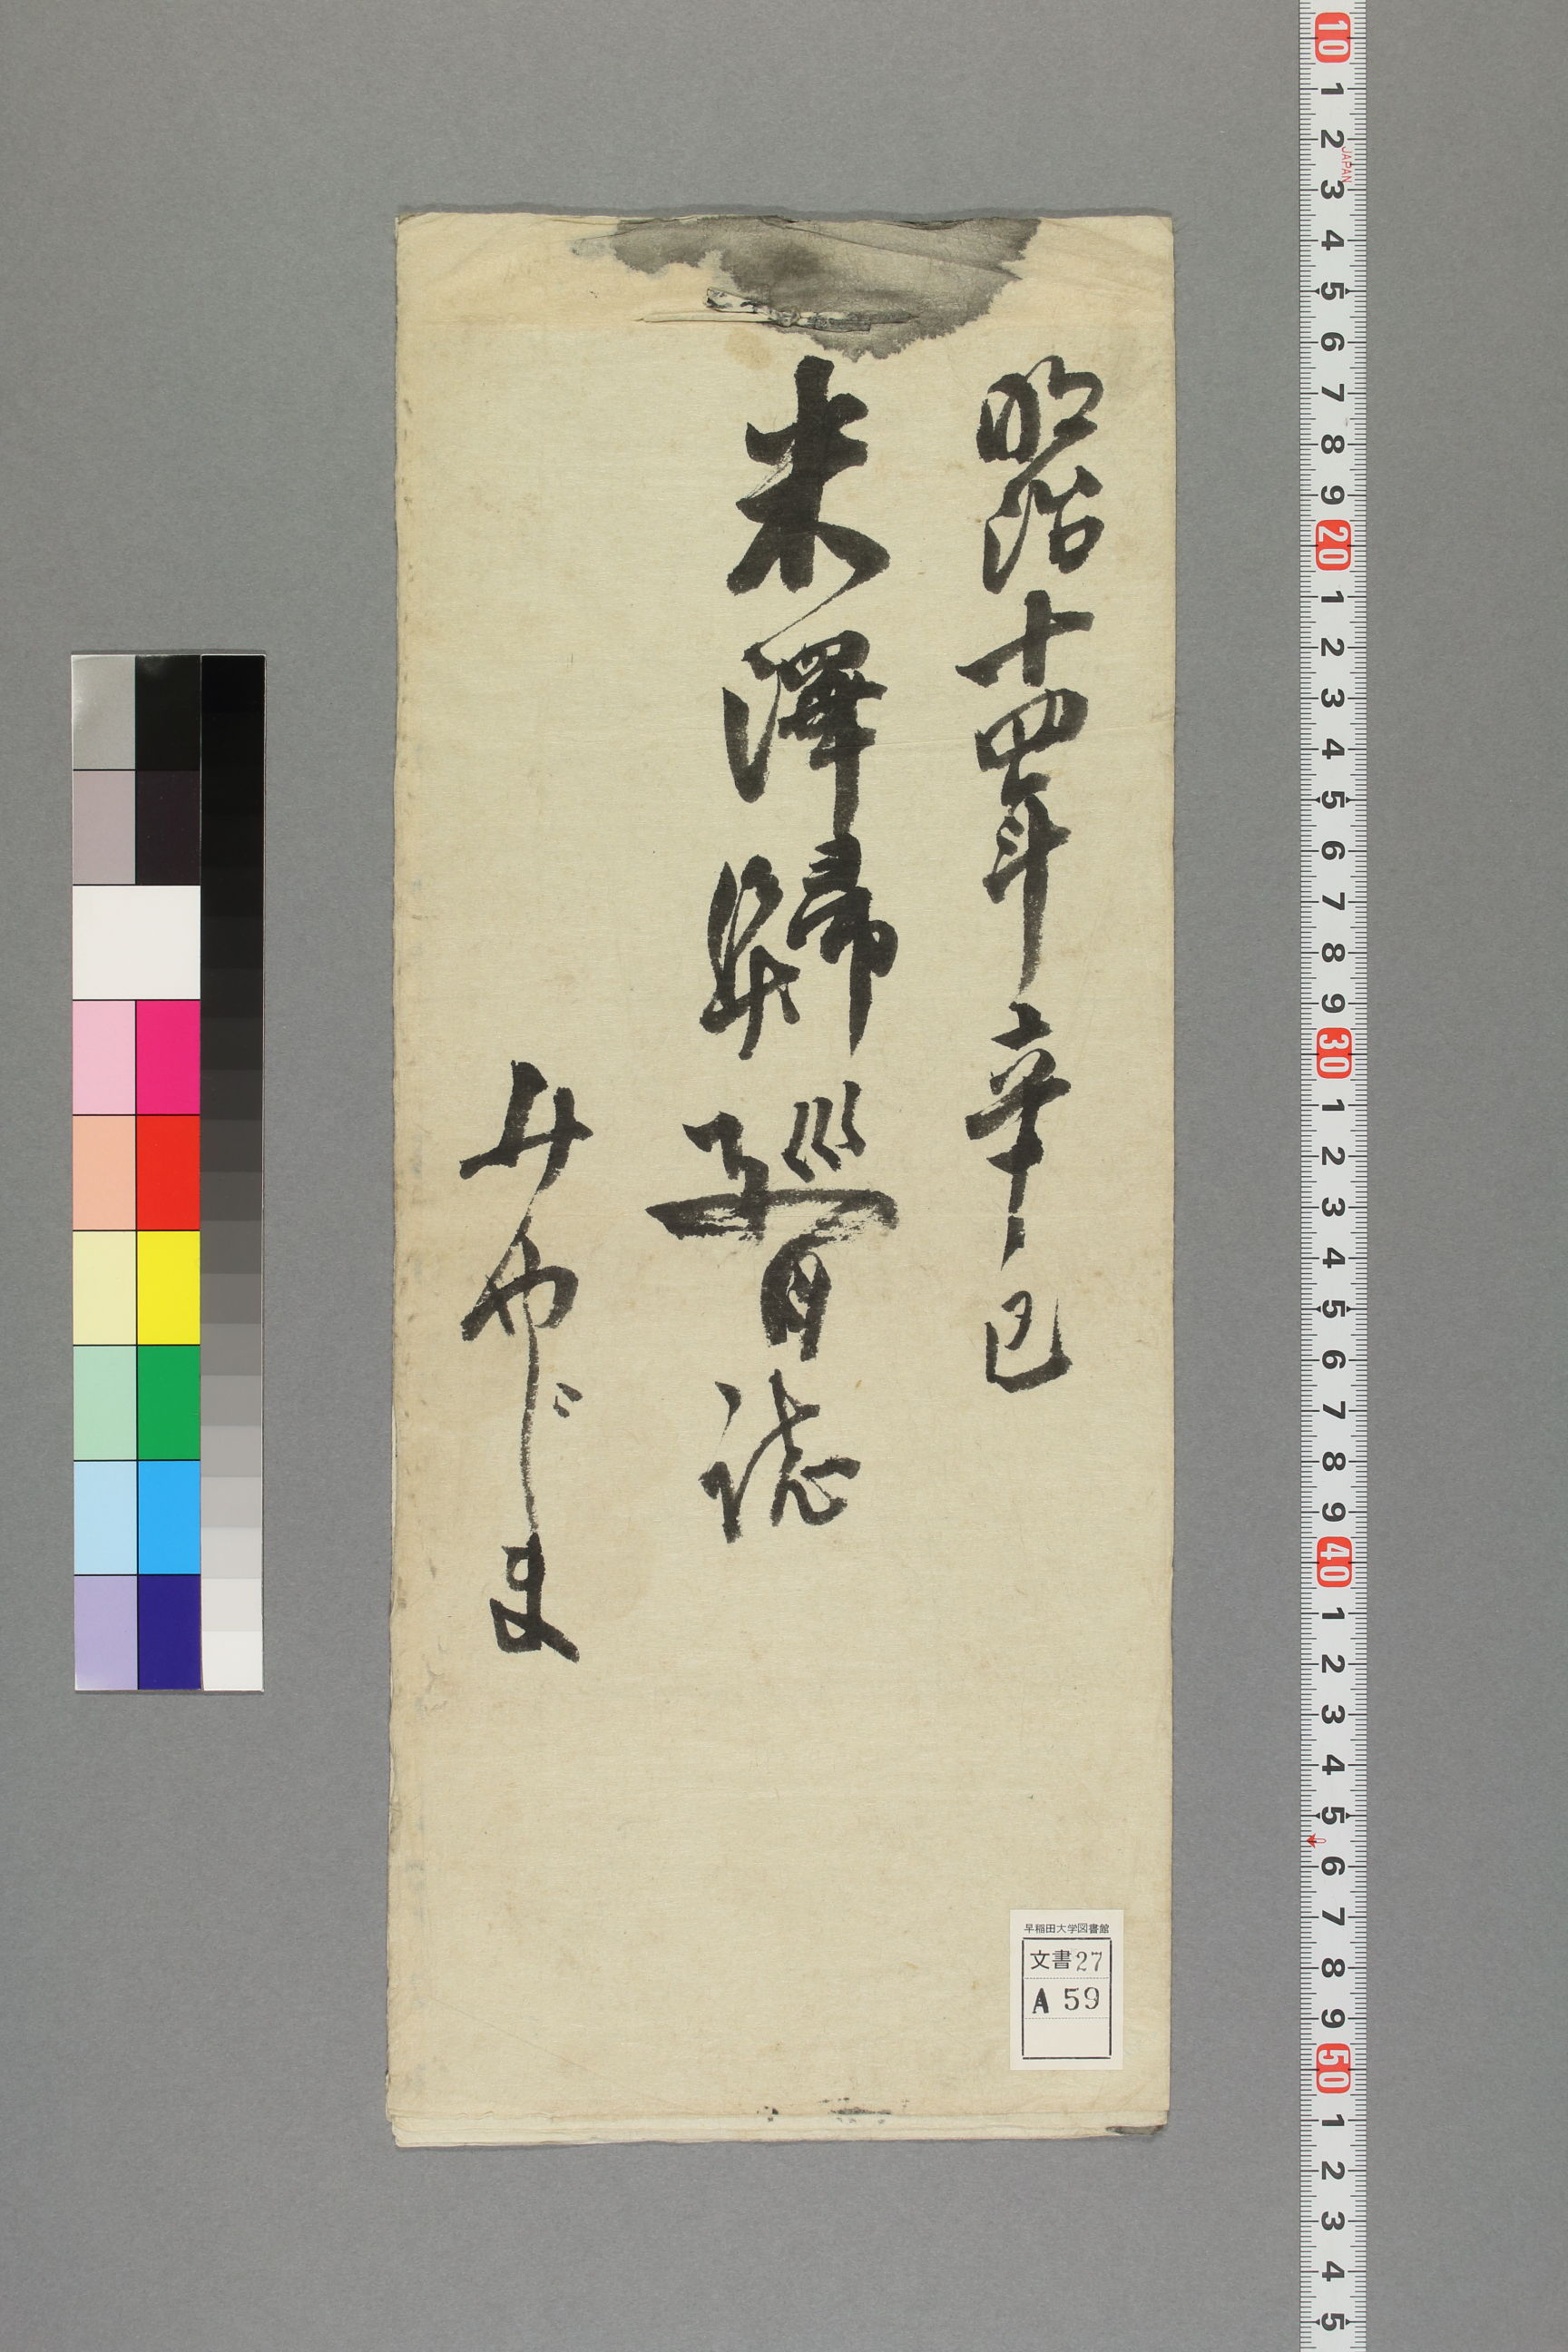 明治十四年辛巳
米澤歸巡日誌
みやじま
早稲田大学図書館
文書27
A 59
10 1 2 3 4 5 6 7 8 9 20 1 2 3 4 5 6 7 8 9 30 1 2 3 4 5 6 7 8 9 40 1 2 3 4 5 6 7 8 9 50 1 2 3 4 5
JAPAN